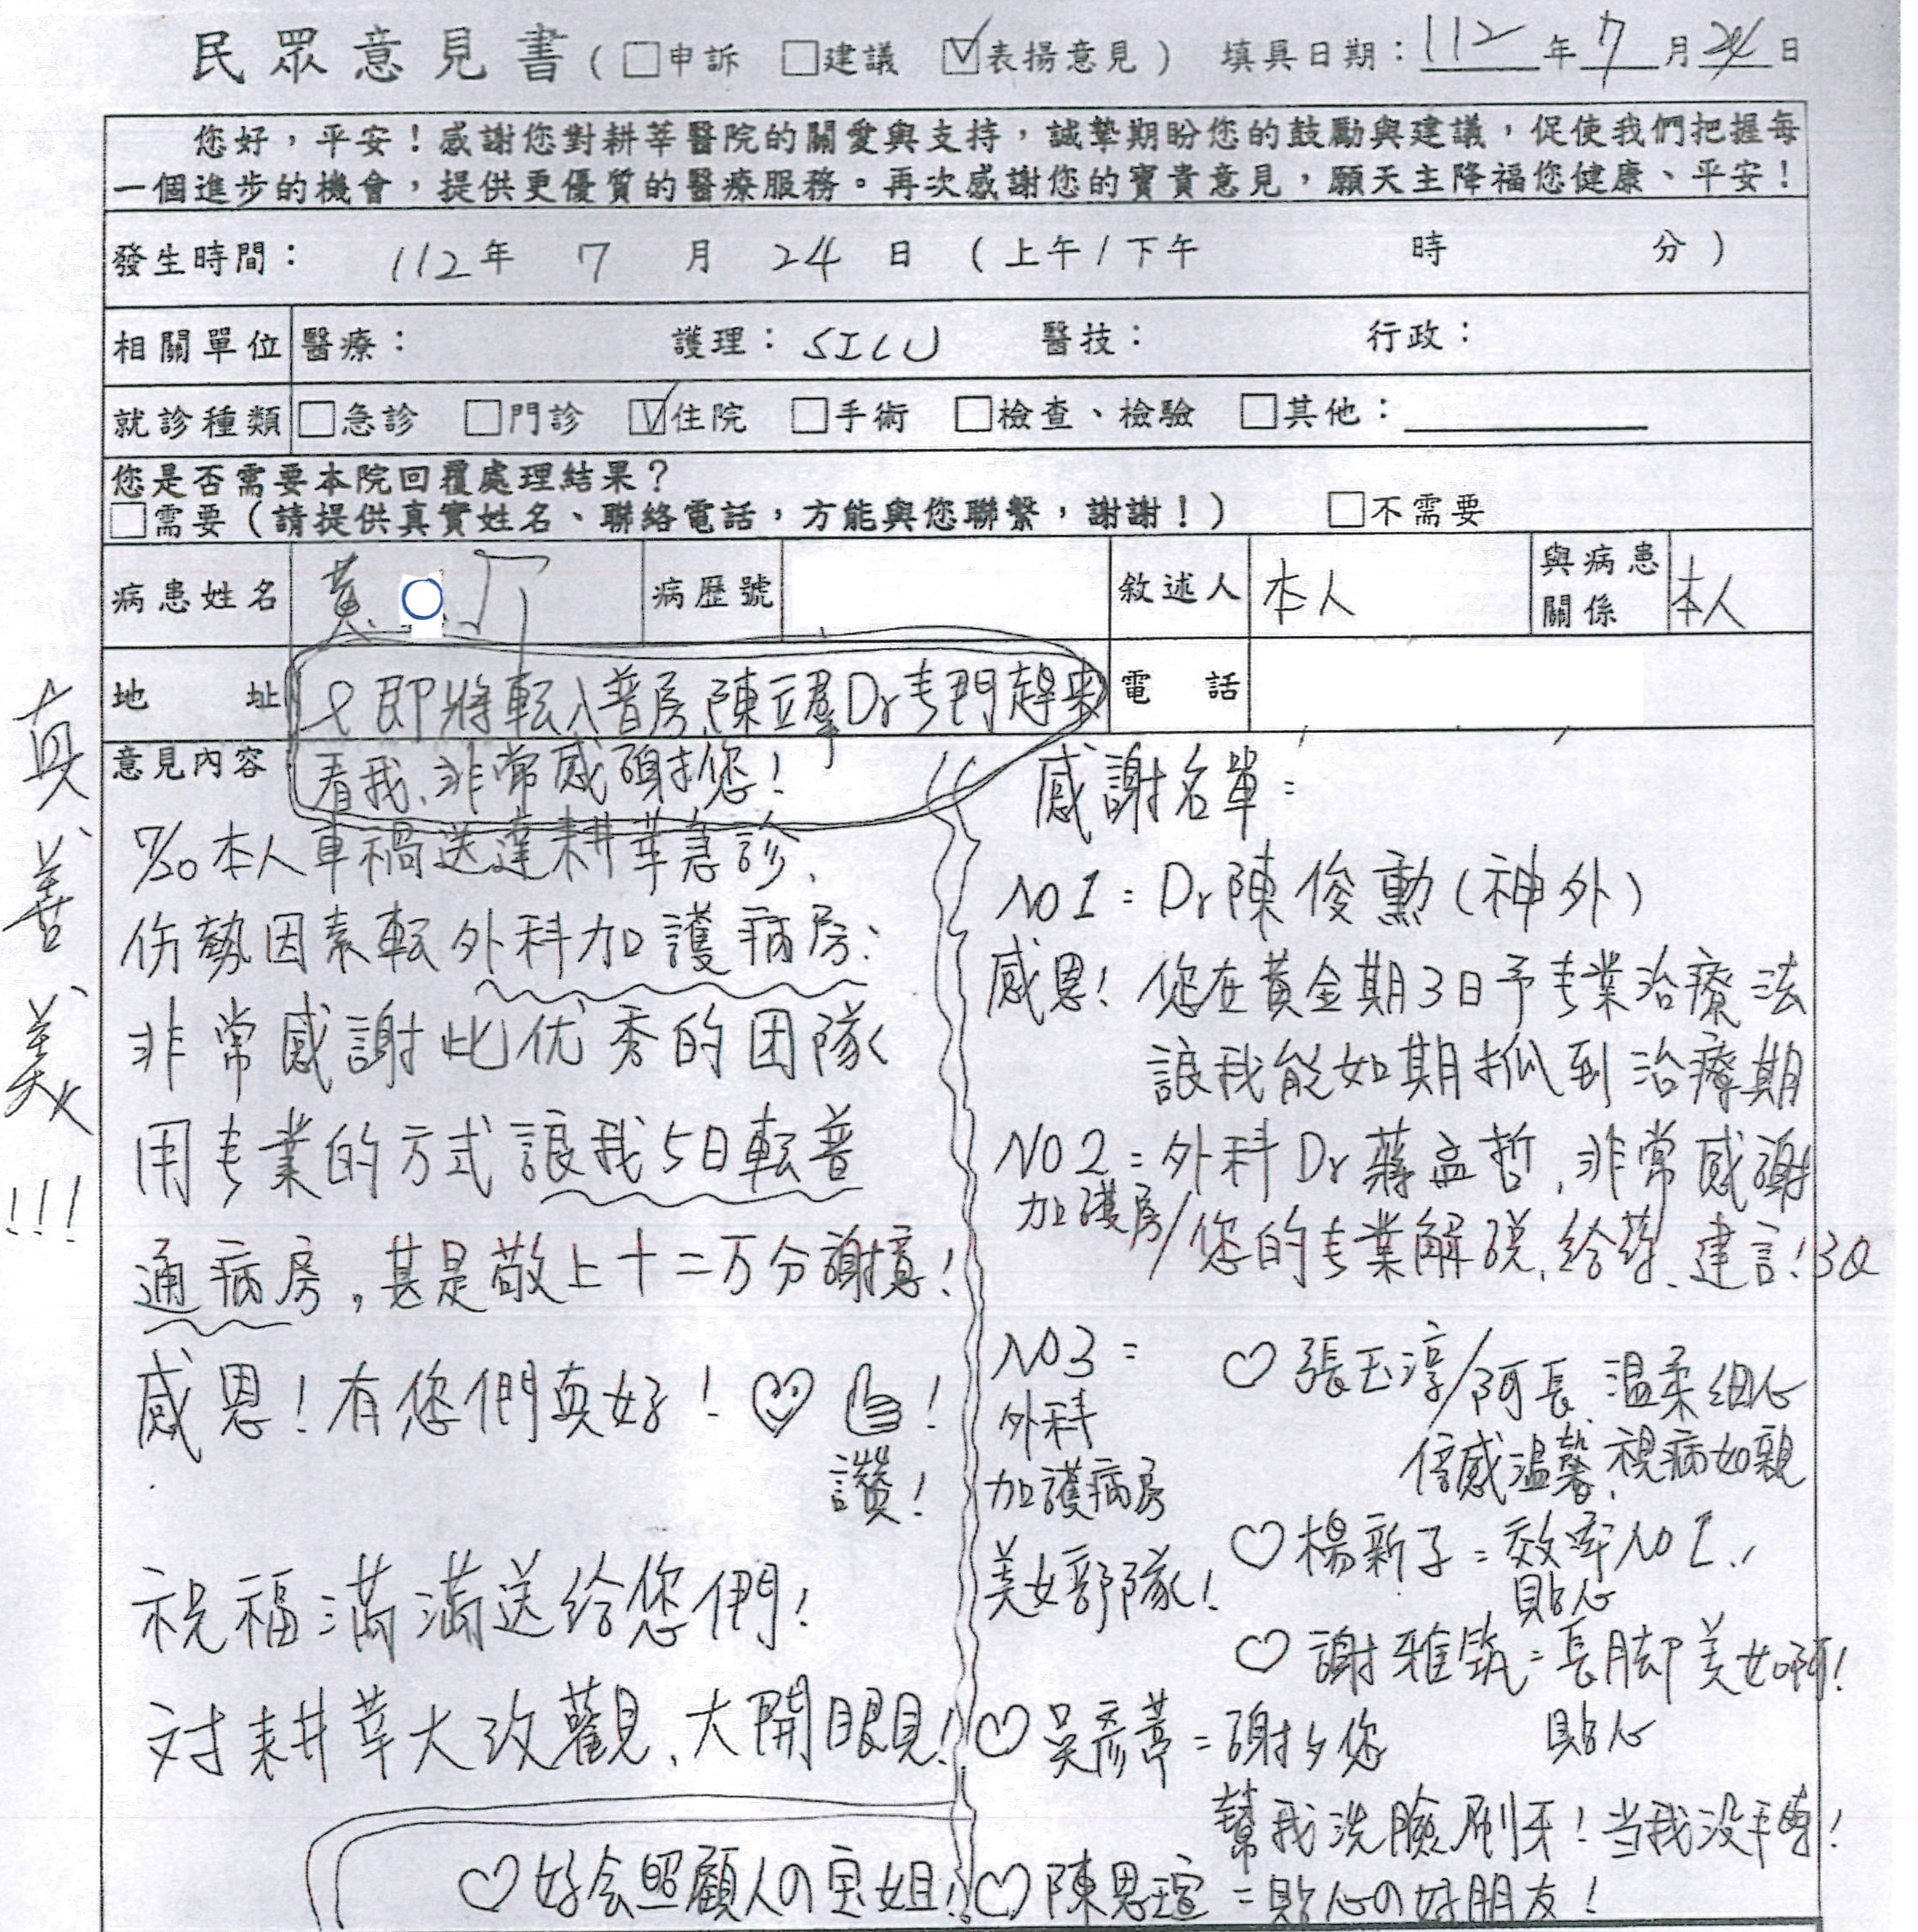 民眾意見書(□申訴 □建議 ☑表揚意見) 填具日期:112年7月24日
您好,平安!感謝您對耕莘醫院的關愛與支持,誠摯期盼您的鼓勵與建議,促使我們把握每
一個進步的機會,提供更優質的醫療服務。再次感謝您的寶貴意見,願天主降福您健康、平安!
發生時間: 112年 7 月 24 日 (上午/下午 時 分)
相關單位 醫療: 護理:SICU 醫技: 行政:
就診種類 □急診 □門診 ☑住院 □手術 □檢查、檢驗 □其他:
您是否需要本院回覆處理結果?
□需要(請提供真實姓名、聯絡電話,方能與您聯繫,謝謝!) □不需要
病患姓名 黃 病歷號 敘述人 本人 與病患關係 本人
地 址 電 話
即將転入普房、陳立羣Dr专門趕來
看我、非常感謝您!
意見內容
7/20本人車禍送達耕莘急診、
伤勢因素転外科加護病房:
非常感謝此优秀的团隊
用专業的方式讓我5日転普
通病房,甚是敬上十二万分謝意!
感恩!有您們真好!♡ !
讚!
祝福滿滿送給您們!
対耕莘大改觀、大開眼見!
♡好会照顧人の宝姐!
真善美!!!
感謝名單:
NO1:Dr陳俊勳(神外)
感恩!您在黃金期3日予专業治療法
讓我能如期抓到治療期
NO2:外科Dr蔣孟哲,非常感謝
加護房/您的专業解説、給葯、建言!3Q
NO3:
外科
加護病房
美女部隊!
♡張玉淳/阿長 温柔細心
倍感温馨、視病如親
♡楊新子=效率NO1、
貼心
♡謝雅筑=長脚美女啊!
貼心
♡吳彥葶=謝々您
幫我洗臉刷牙!当我没手時!
♡陳思瑄=貼心の好朋友!